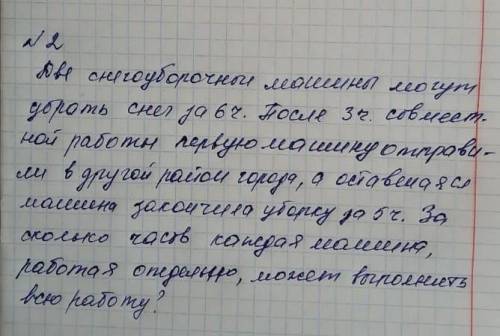 №2
Две снегоуборочные машины могут
убрать снег за 6 ч. После 3 ч. совмест-
ной работы первую машину отправи-
ли в другой район города, а оставшаяся
машина закончила уборку за 5 ч. За
сколько часов каждая машина,
работая отдельно, может выполнить
всю работу?